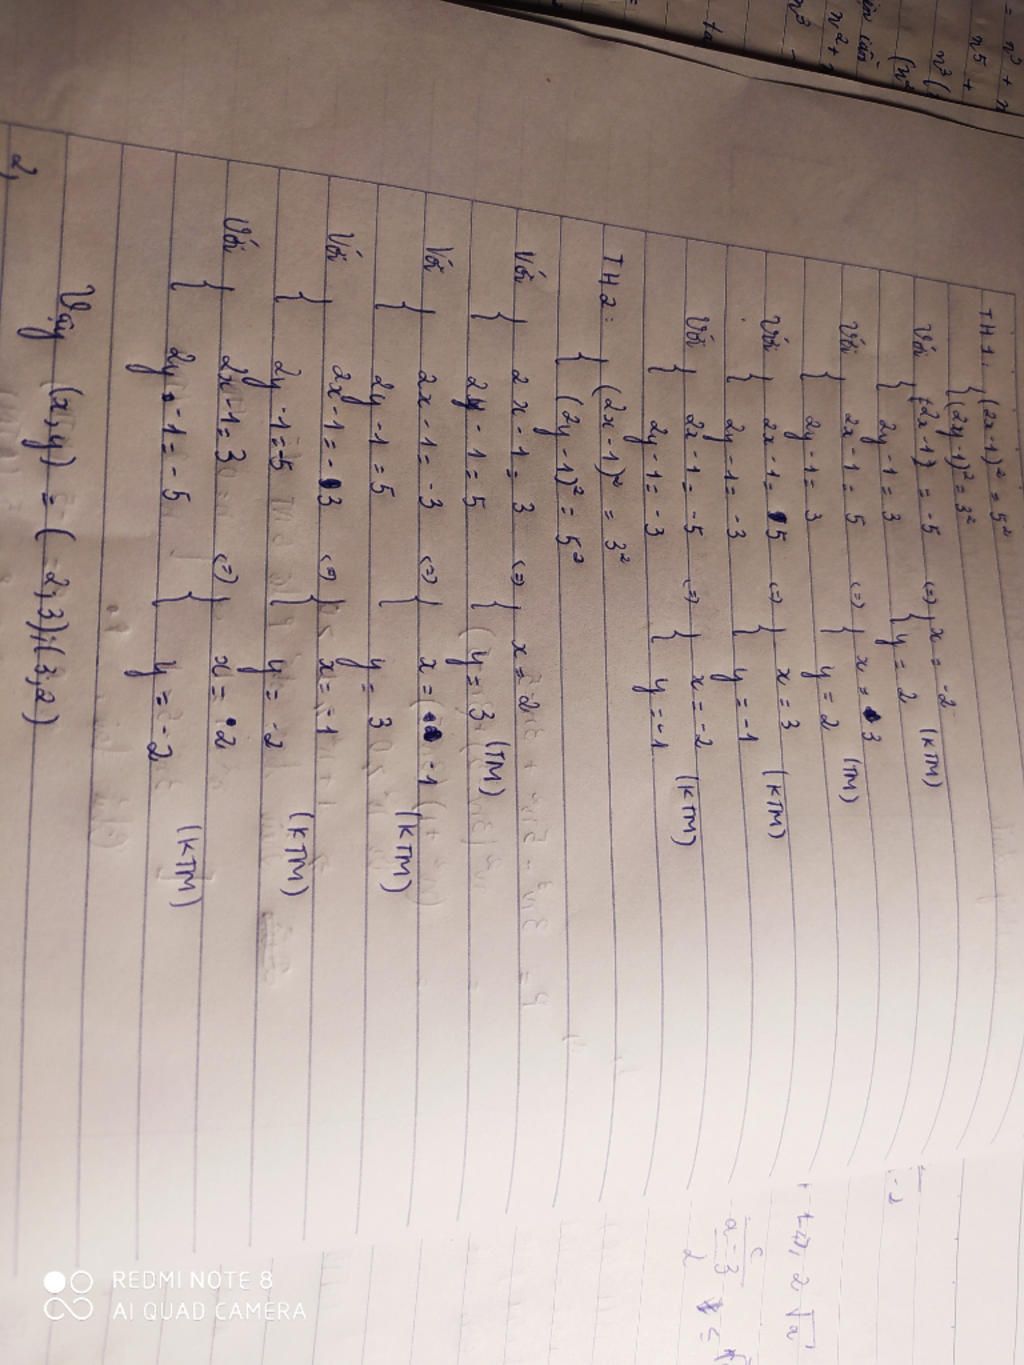 TH1: { (2x-1)² = 5²
(2y-1)² = 3²
Với { 2x-1 = -5 (=) { x = -2
2y-1 = 3 y = 2 (KTM)
Với { 2x-1 = 5 (=) { x = 3
2y-1 = 3 y = 2 (TM)
Với { 2x-1 = 5 (=) { x = 3
2y-1 = -3 y = -1 (KTM)
Với { 2x-1 = -5 (=) { x = -2
2y-1 = -3 y = -1 (KTM)
TH2: { (2x-1)² = 3²
(2y-1)² = 5²
Với { 2x-1 = 3 (=) { x = 2
2y-1 = 5 y = 3 (TM)
Với { 2x-1 = -3 (=) { x = -1
2y-1 = 5 y = 3 (KTM)
Với { 2x-1 = -3 (=) { x = -1
2y-1 = -5 y = -2 (KTM)
Với { 2x-1 = 3 (=) { x = 2
2y-1 = -5 y = -2 (KTM)
Vậy (x,y) = (2,3);(3,2)
2,
REDMI NOTE 8
AI QUAD CAMERA